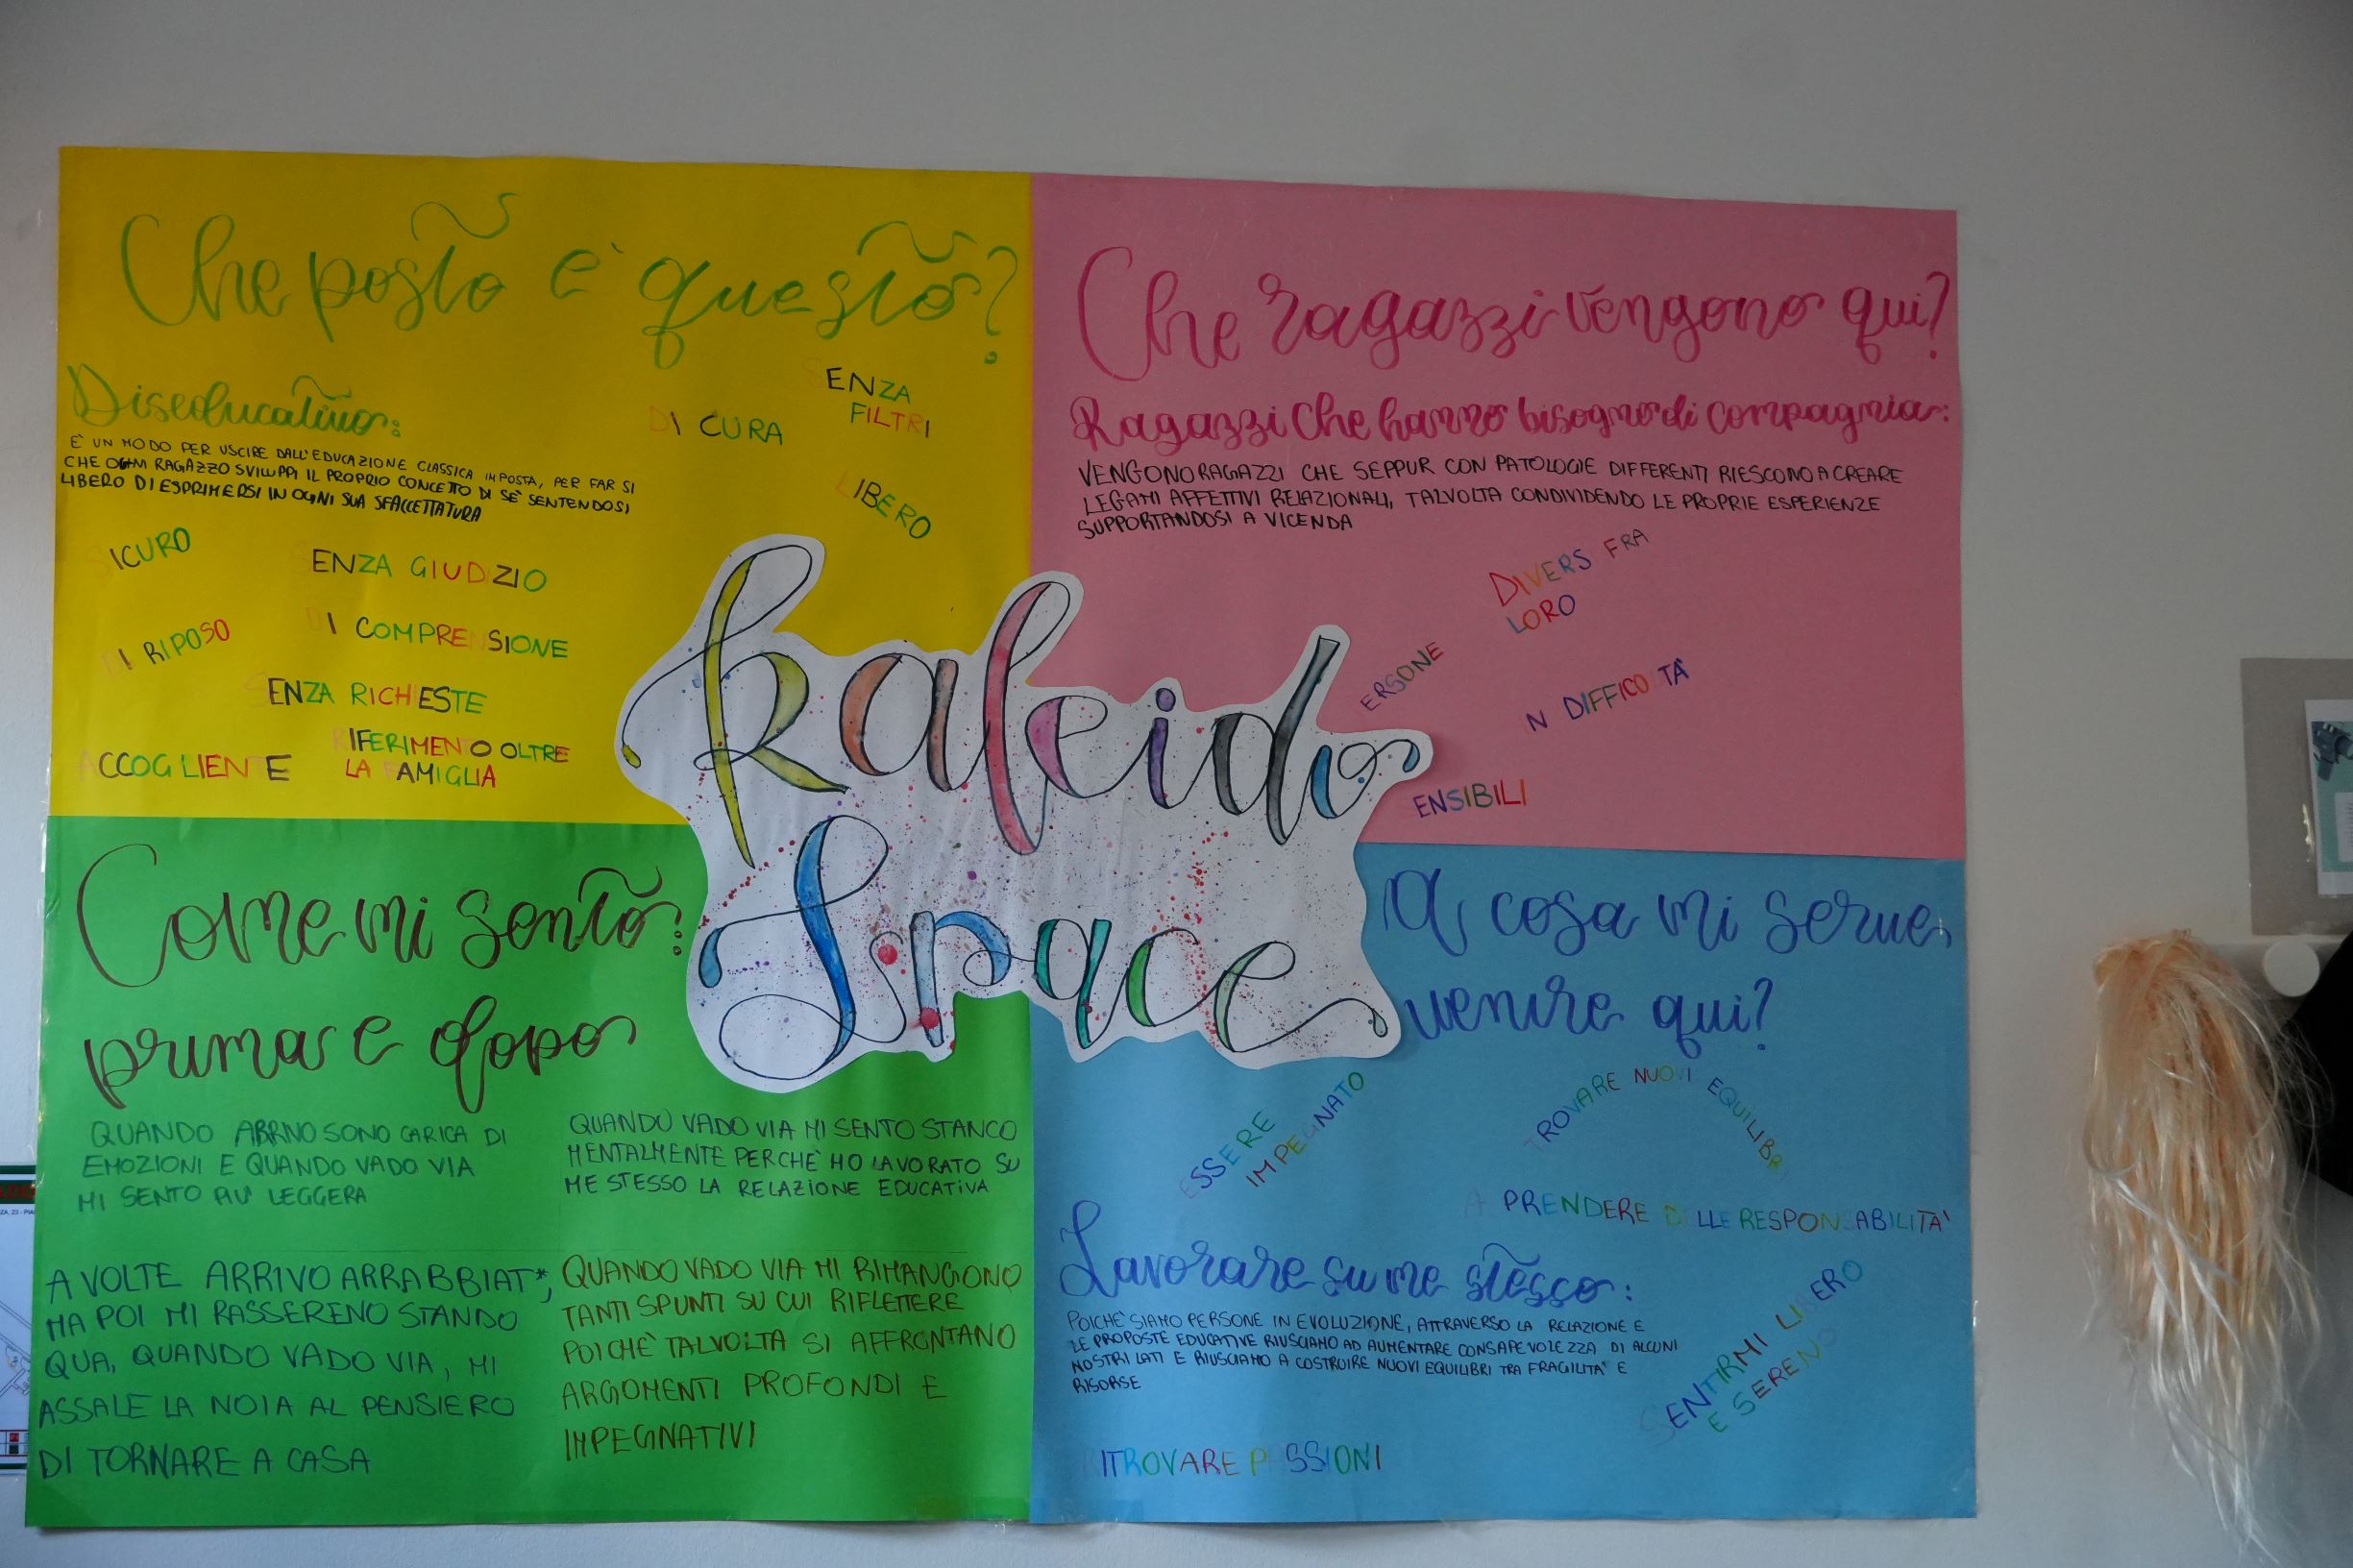 Che posto è questo?
Diseducativo:
È UN MODO PER USCIRE DALL'EDUCAZIONE CLASSICA IMPOSTA, PER FAR SI
CHE OGNI RAGAZZO SVILUPPI IL PROPRIO CONCETTO DI SÈ SENTENDOSI
LIBERO DI ESPRIMERSI IN OGNI SUA SFACCETTATURA
DI CURA
SENZA
FILTRI
LIBERO
SICURO
SENZA GIUDIZIO
DI RIPOSO
DI COMPRENSIONE
SENZA RICHIESTE
ACCOGLIENTE
RIFERIMENTO OLTRE
LA FAMIGLIA
Che ragazzi vengono qui?
Ragazzi che hanno bisogno di compagnia:
VENGONO RAGAZZI CHE SEPPUR CON PATOLOGIE DIFFERENTI RIESCONO A CREARE
LEGAMI AFFETTIVI RELAZIONALI, TALVOLTA CONDIVIDENDO LE PROPRIE ESPERIENZE
SUPPORTANDOSI A VICENDA
DIVERS FRA
LORO
ERSONE
N DIFFICOLTÀ
ENSIBILI
Kaleido
Space
Come mi sento:
prima e dopo
QUANDO ARRIVO SONO CARICA DI
EMOZIONI E QUANDO VADO VIA
MI SENTO PIU' LEGGERA
QUANDO VADO VIA MI SENTO STANCO
MENTALMENTE PERCHÈ HO LAVORATO SU
ME STESSO LA RELAZIONE EDUCATIVA
A VOLTE ARRIVO ARRABBIAT*,
MA POI MI RASSERENO STANDO
QUA, QUANDO VADO VIA, MI
ASSALE LA NOIA AL PENSIERO
DI TORNARE A CASA
QUANDO VADO VIA MI RIMANGONO
TANTI SPUNTI SU CUI RIFLETTERE
POICHÈ TALVOLTA SI AFFRONTANO
ARGOMENTI PROFONDI E
IMPEGNATIVI
A cosa mi serve
venire qui?
ESSERE
IMPEGNATO
TROVARE NUOVI EQUILIBRI
A PRENDERE DELLE RESPONSABILITA'
Lavorare su me stesso:
POICHE' SIAMO PERSONE IN EVOLUZIONE, ATTRAVERSO LA RELAZIONE E
LE PROPOSTE EDUCATIVE RIUSCIAMO AD AUMENTARE CONSAPEVOLEZZA DI ALCUNI
NOSTRI LATI E RIUSCIAMO A COSTRUIRE NUOVI EQUILIBRI TRA FRAGILITA' E
RISORSE
SENTIRMI LIBERO
E SERENO
RITROVARE PASSIONI